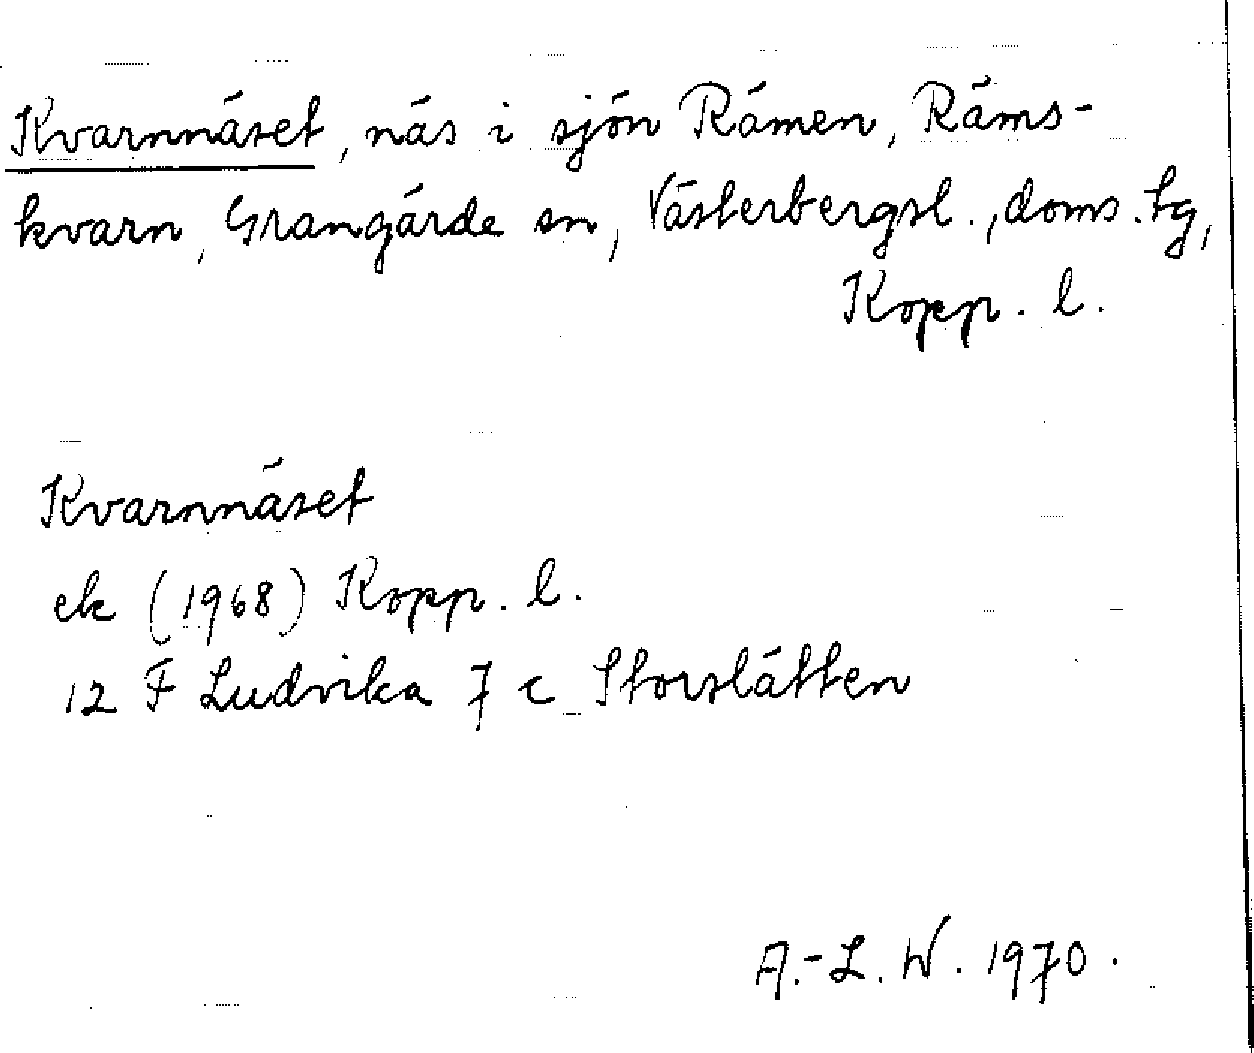 Kvarnnäset, näs i sjön Råmen, Råms-
kvarn, Grangärde sn, Västerbergsl., doms. tg,
Kopp. l.
Kvarnnäset
ek (1968) Kopp. l.
12 F Ludvika 7 c Storslåtten
A.-L. W. 1970.